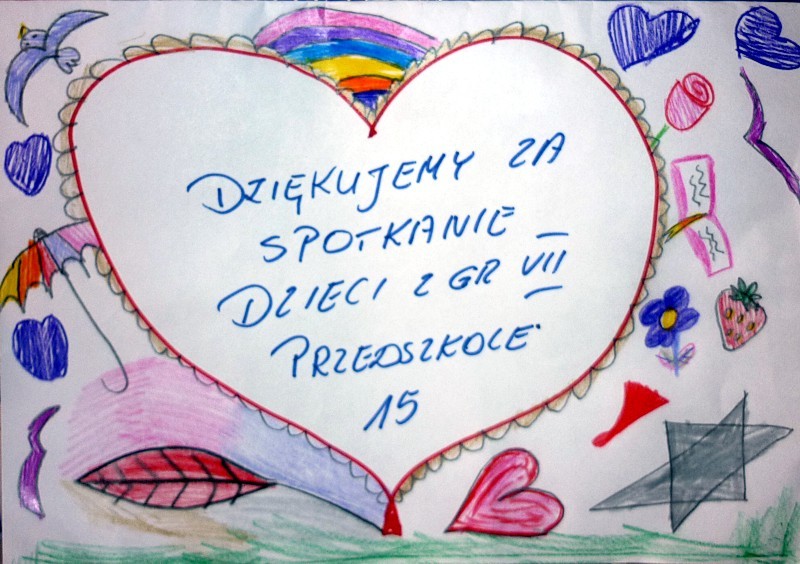 DZIĘKUJEMY ZA
SPOTKANIE
DZIECI Z GR VII
PRZEDSZKOLE
15